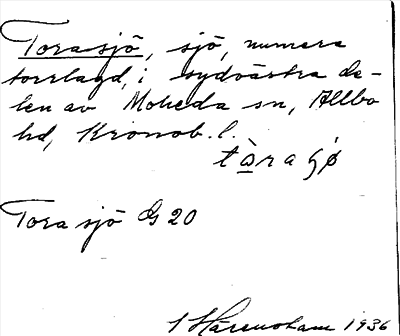 Torasjö, sjö, numera
torrlagd, i sydvästra de-
len av Moheda sn, Allbo
hd, Kronob. l.
tàra ʃø
Tora sjö G 20
Härenstam 1936